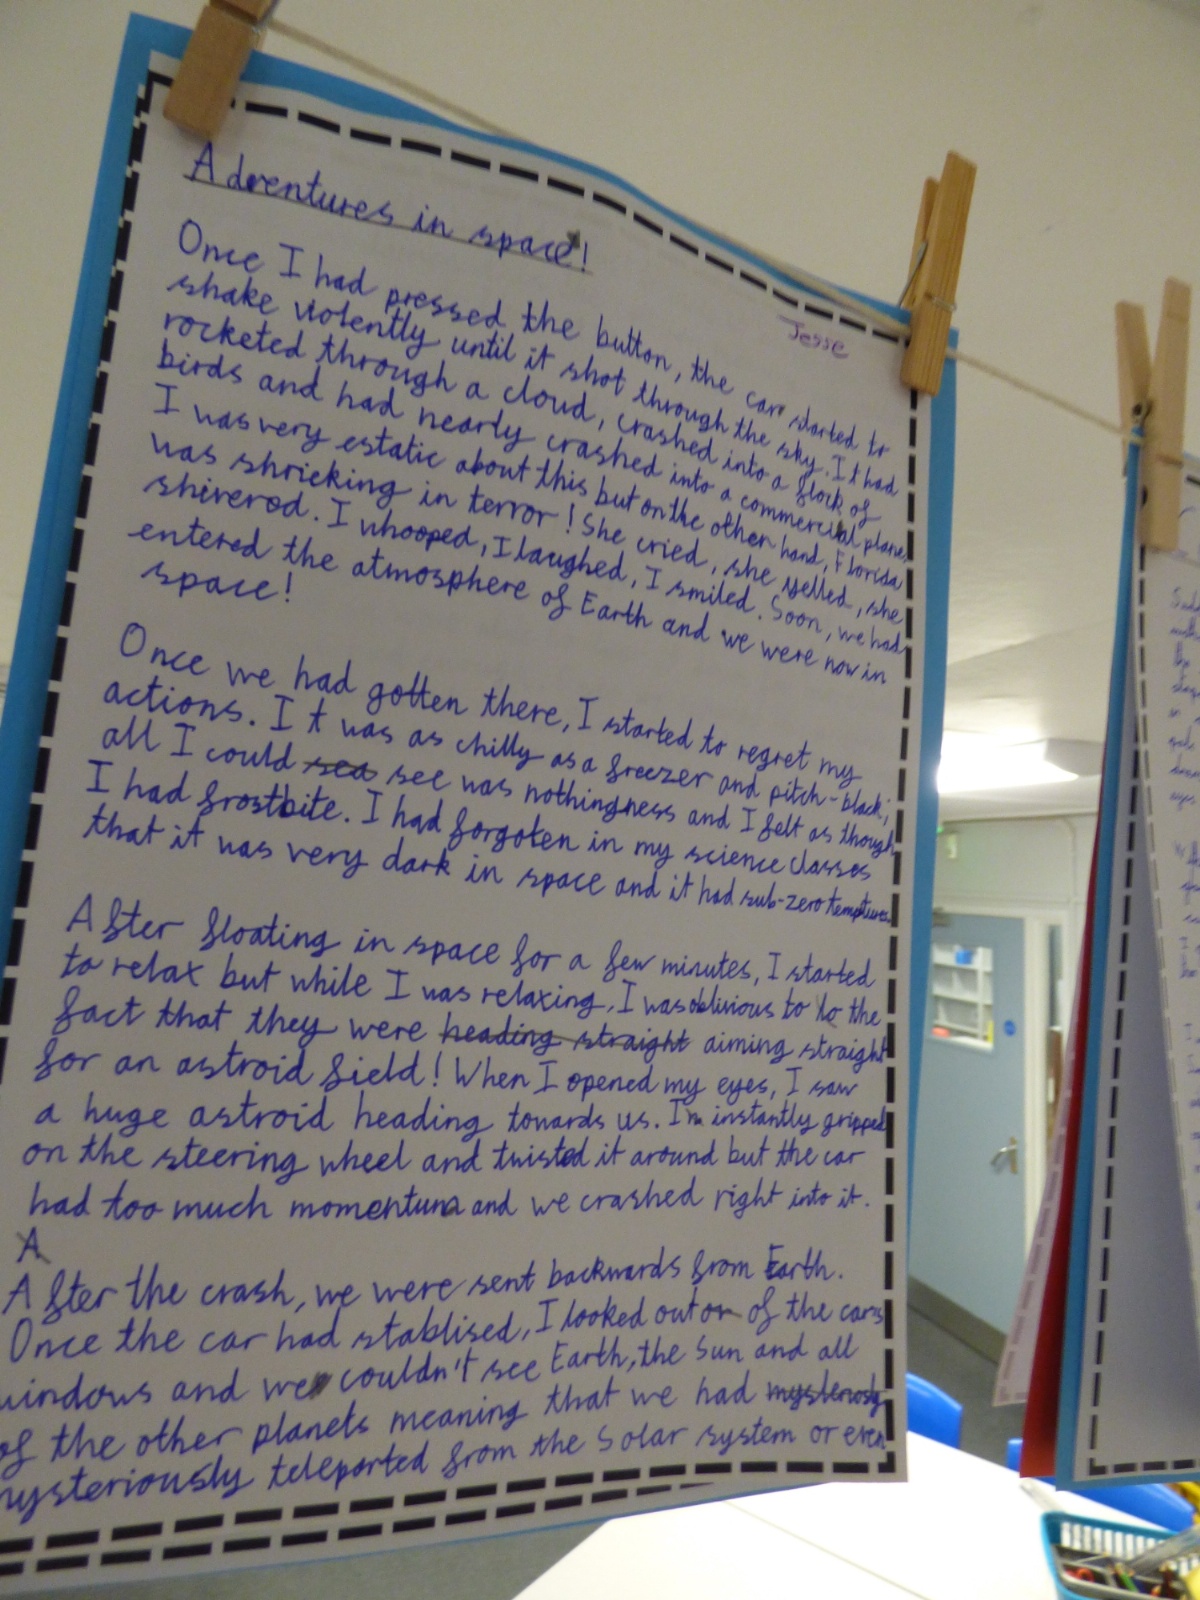 Adventures in space!
Jesse
Once I had pressed the button, the car started to
shake violently until it shot through the sky. It had
rocketed through a cloud, crashed into a flock of
birds and had nearly crashed into a commercial plane.
I was very estatic about this but on the other hand, Florida
was shrieking in terror! She cried, she yelled, she
shivered. I whooped, I laughed, I smiled. Soon, we had
entered the atmosphere of Earth and we were now in
space!
Once we had gotten there, I started to regret my
actions. It was as chilly as a freezer and pitch-black;
all I could sea see was nothingness and I felt as though
I had frostbite. I had forgoten in my science classes
that it was very dark in space and it had sub-zero temptures.
After floating in space for a few minutes, I started
to relax but while I was relaxing, I was oblivious to to the
fact that they were heading straight aiming straight
for an astroid field! When I opened my eyes, I saw
a huge astroid heading towards us. I'm instantly gripped
on the steering wheel and twisted it around but the car
had too much momentum and we crashed right into it.
A
After the crash, we were sent backwards from Earth.
Once the car had stablised, I looked out or of the cars
windows and we couldn't see Earth, the Sun and all
of the other planets meaning that we had mysteriosly
mysteriously teleported from the Solar system or even